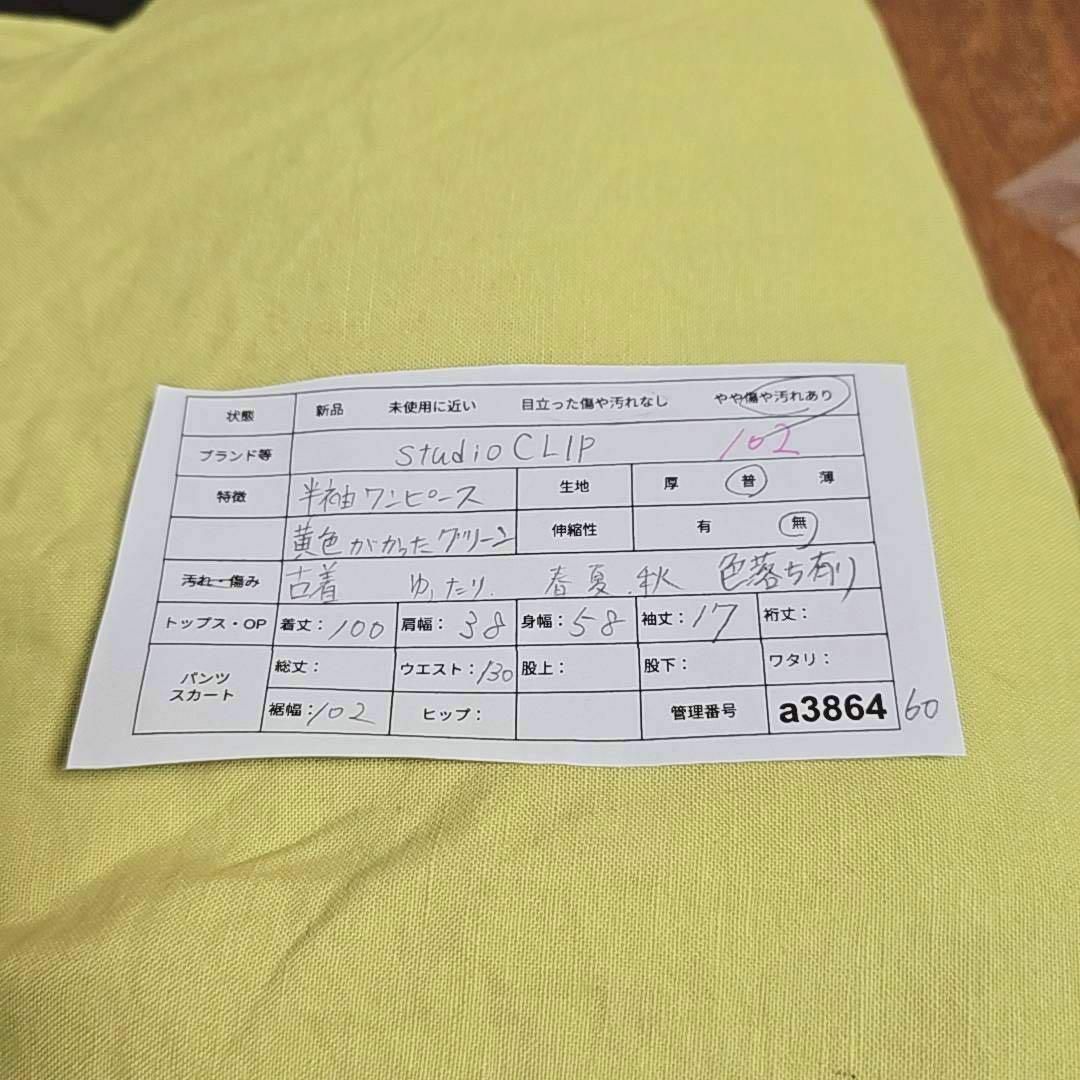 状態 新品 未使用に近い 目立った傷や汚れなし やや傷や汚れあり
ブランド等 studio CLIP 102
特徴 半袖ワンピース 生地 厚 普 薄
黄色がかったグリーン 伸縮性 有 無
汚れ・傷み 古着 ゆったり. 春夏.秋 色落ち有り
トップス・OP 着丈：100 肩幅：38 身幅：58 袖丈：17 裄丈：
パンツ スカート 総丈： ウエスト：130 股上： 股下： ワタリ：
裾幅：102 ヒップ： 管理番号 a3864 60